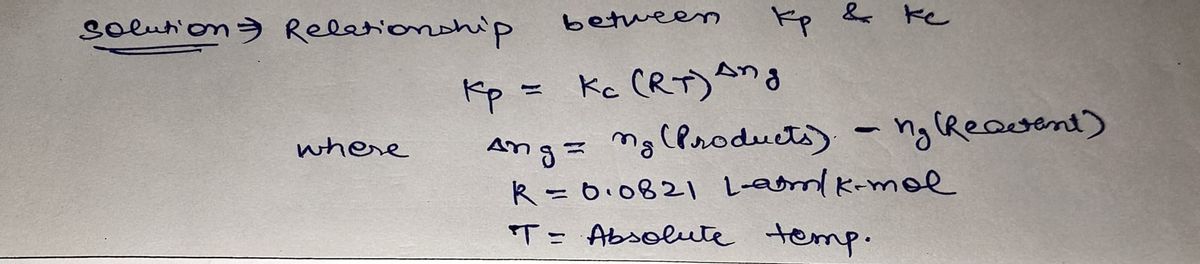 Solution ⇒ Relationship between Kp & Kc
Kp = Kc (RT)^Δng
where Δng = ng (Products) - ng (Reactant)
R = 0.0821 L-atm/K-mol
T = Absolute temp.